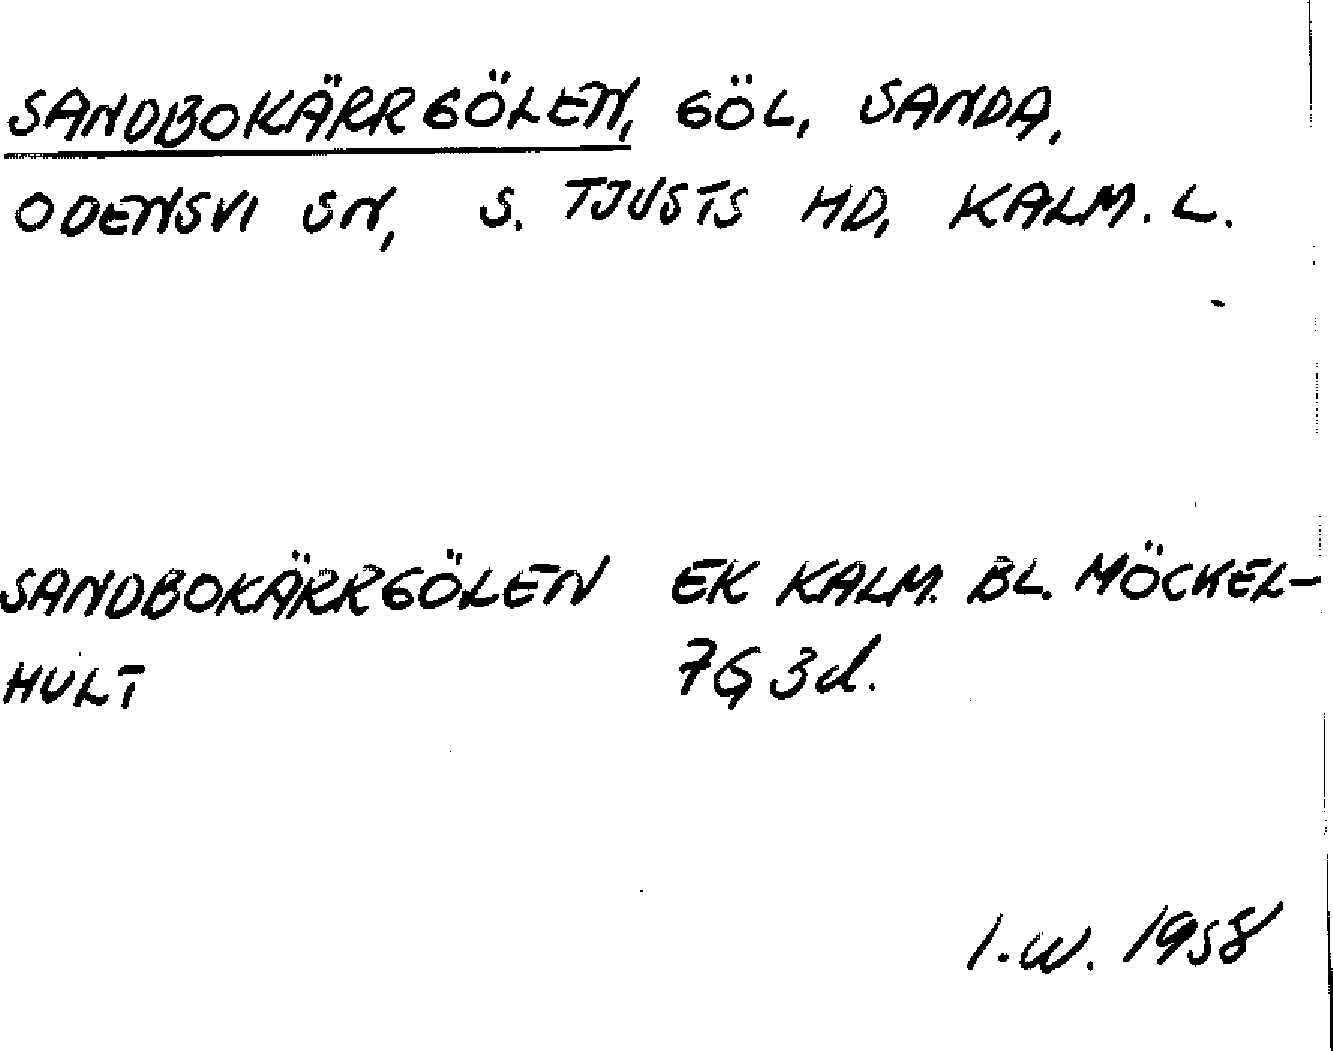 SANDBOKÄRRGÖLEN, GÖL, SANDA,
ODENSVI SN, S. TJUSTS HD, KALM. L.
SANDBOKÄRRGÖLEN EK KALM. BL. MÖCKEL-
HULT 7G 3d.
I.W. 1958